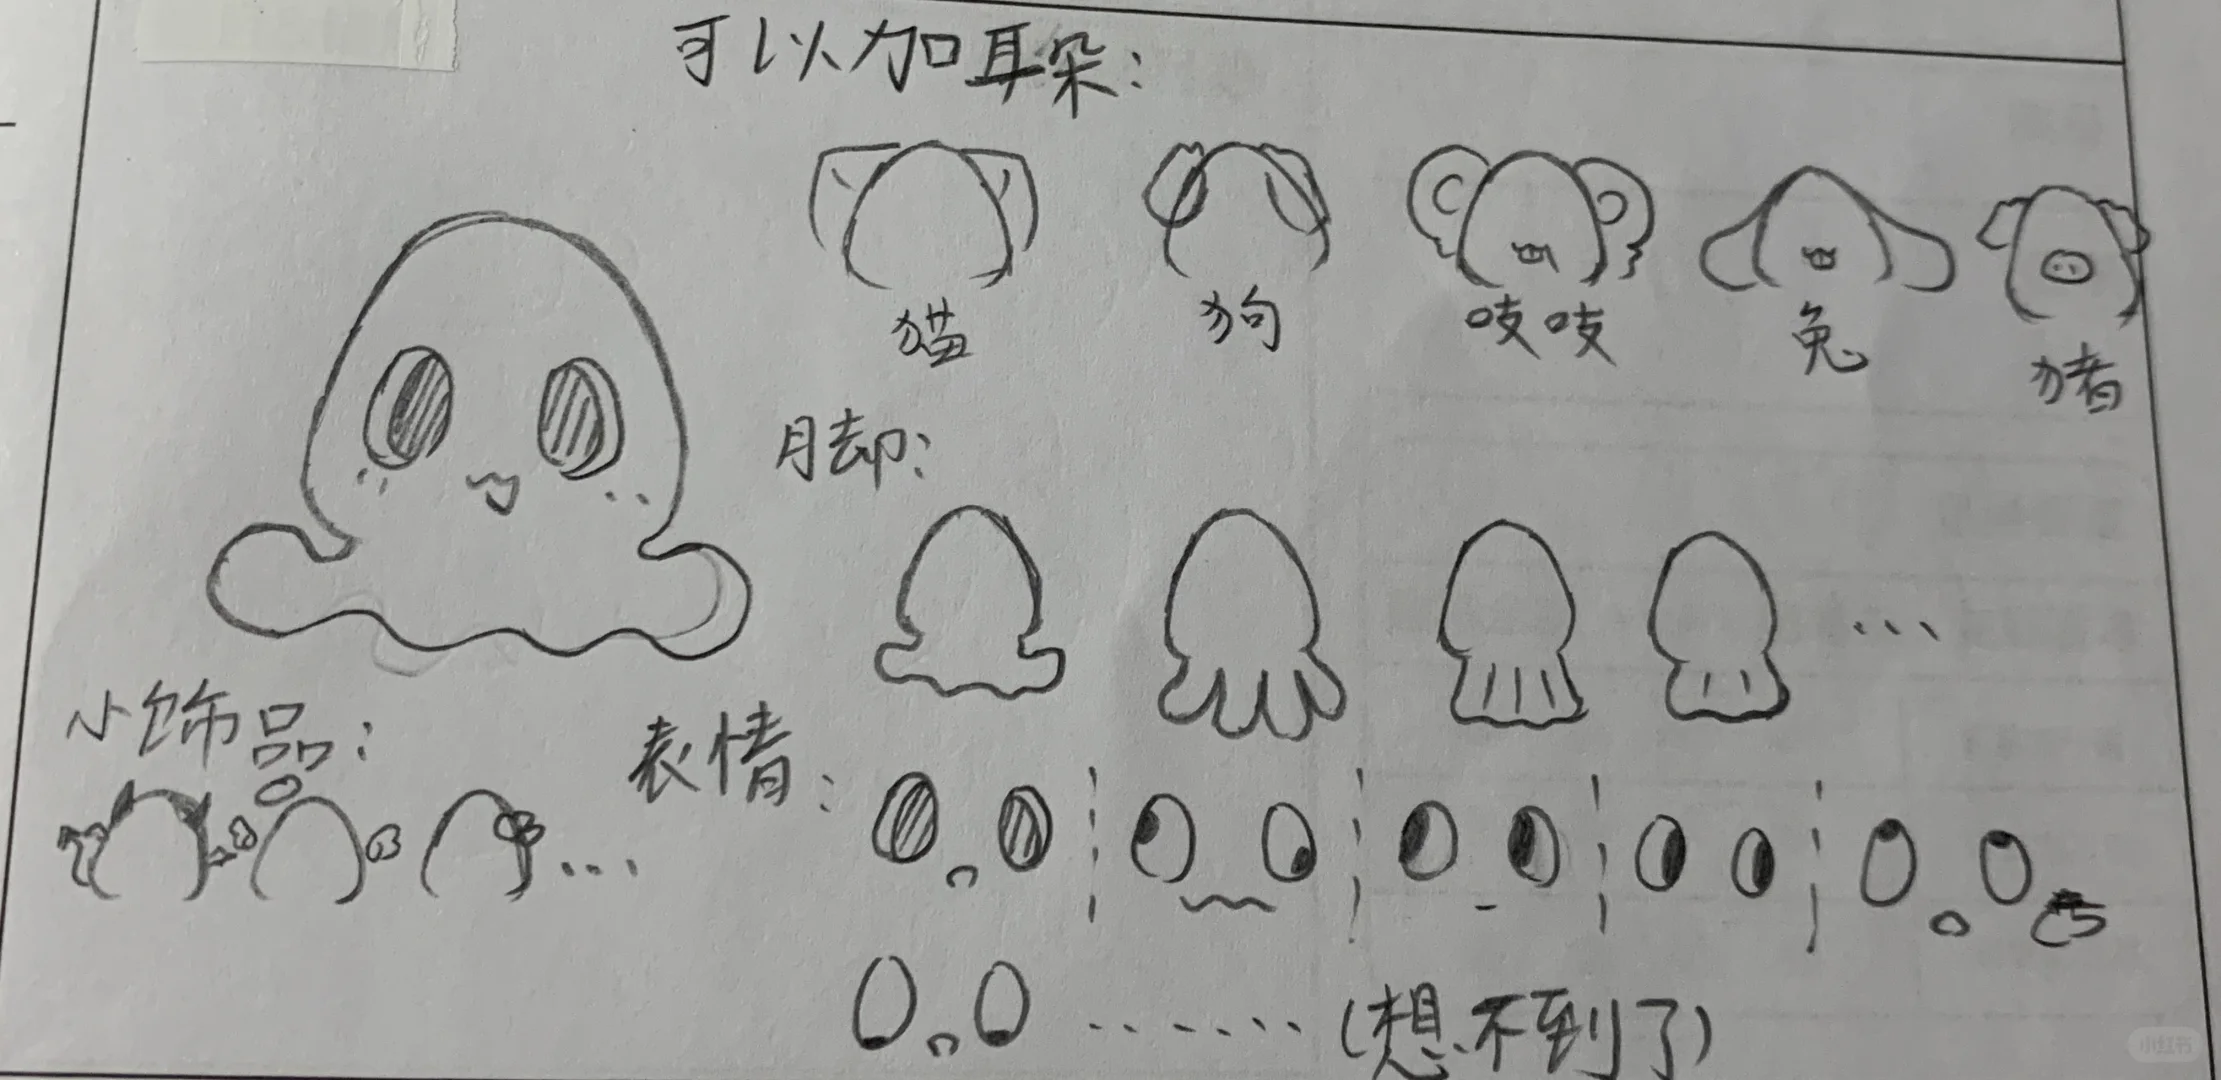 可以加耳朵：
猫
狗
吱吱
兔
猪
脚：
小饰品：
表情：
（想不到了）
小红书